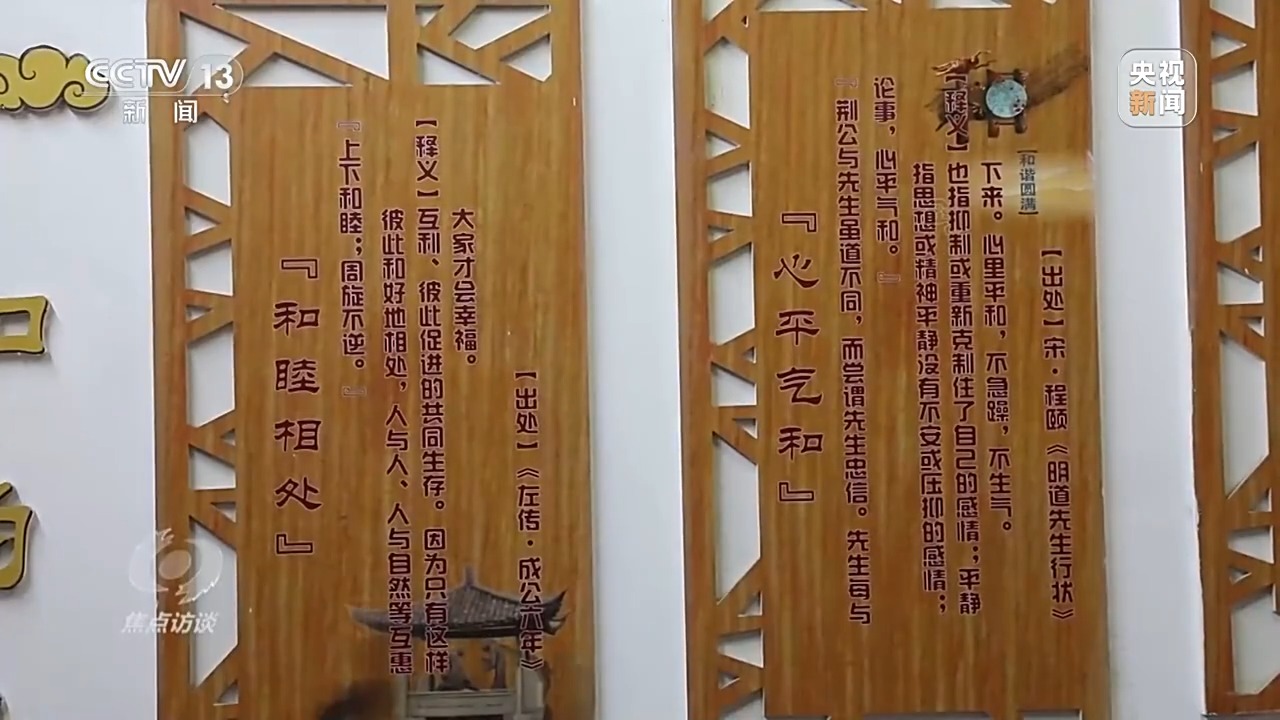 CCTV 13
新闻
央视
新闻
『和睦相处』
『上下和睦；周旋不逆。』
彼此和好地相处，人与人、人与自然等互惠
【释义】互利、彼此促进的共同生存。因为只有这样
大家才会幸福。
【出处】《左传·成公六年》
『心平气和』
『荆公与先生虽道不同，而尝谓先生忠信。先生每与
论事，心平气和。』
指思想或精神平静没有不安或压抑的感情；
【释义】也指抑制或重新克制住了自己的感情；平静
下来。心里平和，不急躁，不生气。
[和谐圆满]
【出处】宋·程颐《明道先生行状》
焦点访谈